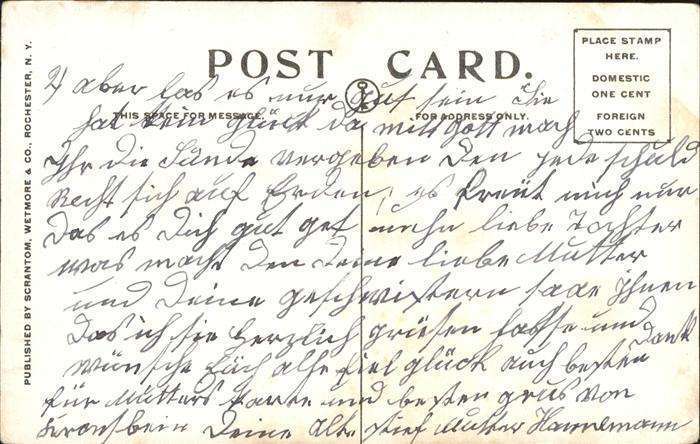 POST CARD.
PLACE STAMP
HERE.
DOMESTIC
ONE CENT
FOREIGN
TWO CENTS
THIS SPACE FOR MESSAGE.
FOR ADDRESS ONLY.
PUBLISHED BY SCRANTOM, WETMORE & CO., ROCHESTER, N. Y.
2) aber las es nur gut sein Sie
hat kein glück da mitt gott mach
Ihr die Sünde vergeben den jede schuld
Recht sich auf Erden, es freut mich nur
das es dich gut get mein liebe Tochter
was macht den deine liebe Mutter
und deine geschwistern sage Ihnen
das ich sie herzlich grüsen lasse und
wünsche Euch alle viel glück auch besten Dank
für Mutters karte und besten grus von
deine alte stief Mutter Hannemann